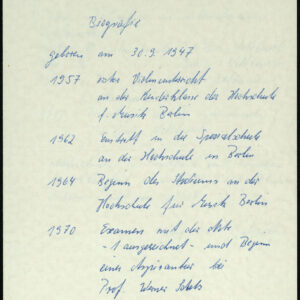 Biografie
geboren am 30.9.1947
1957 erster Violinunterricht
an der Kinderklasse der Hochschule
f. Musik Berlin
1962 Eintritt in die Spezialschule
an der Hochschule in Berlin
1964 Beginn des Studiums an der
Hochschule für Musik Berlin
1970 Examen mit der Note
- 1 ausgezeichnet - und Beginn
einer Aspirantur bei
Prof. Werner